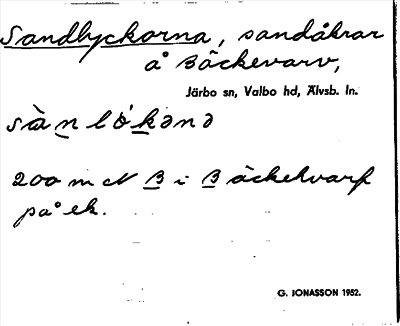 Sandlyckorna, sandåkrar
å Bäckevarv,
Järbo sn, Valbo hd, Älvsb. ln.
sàn lókənə
200 m N B i B äckehvarf
på ek.
G. JONASSON 1952.